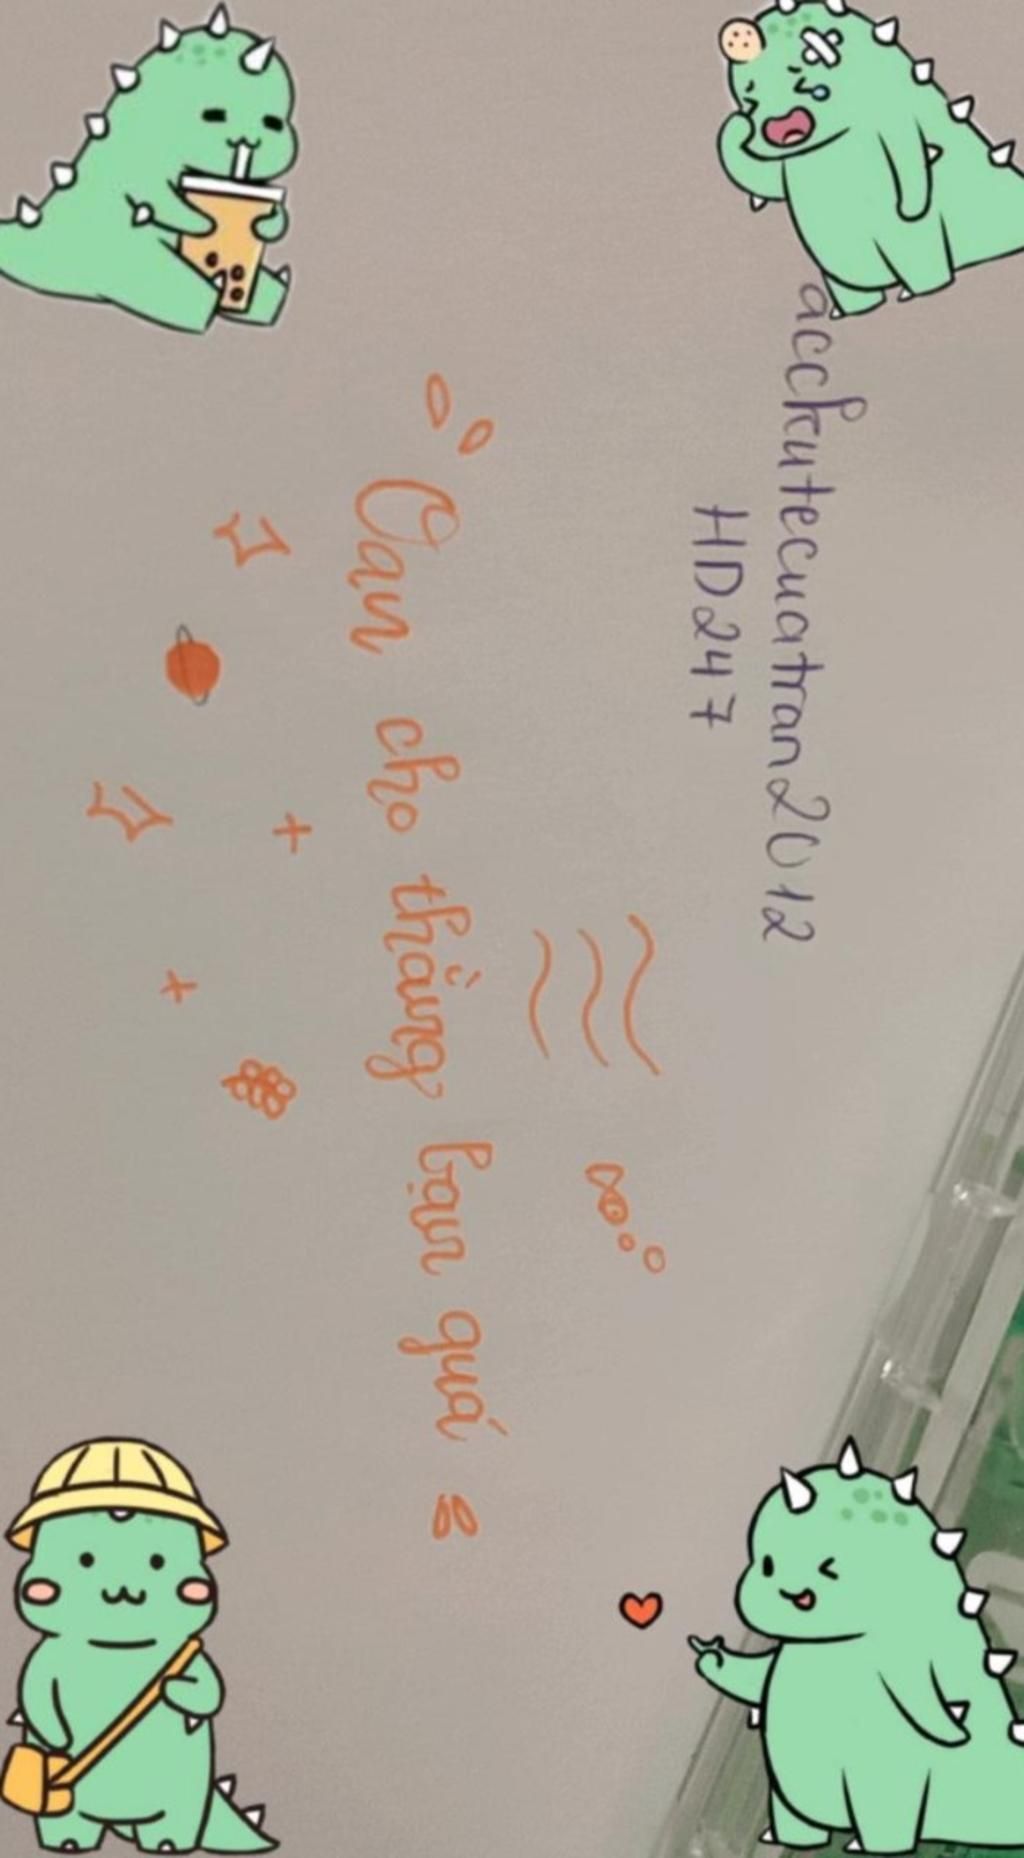 acckutecuatran2012
HD247
Can cho thằng bạn quá